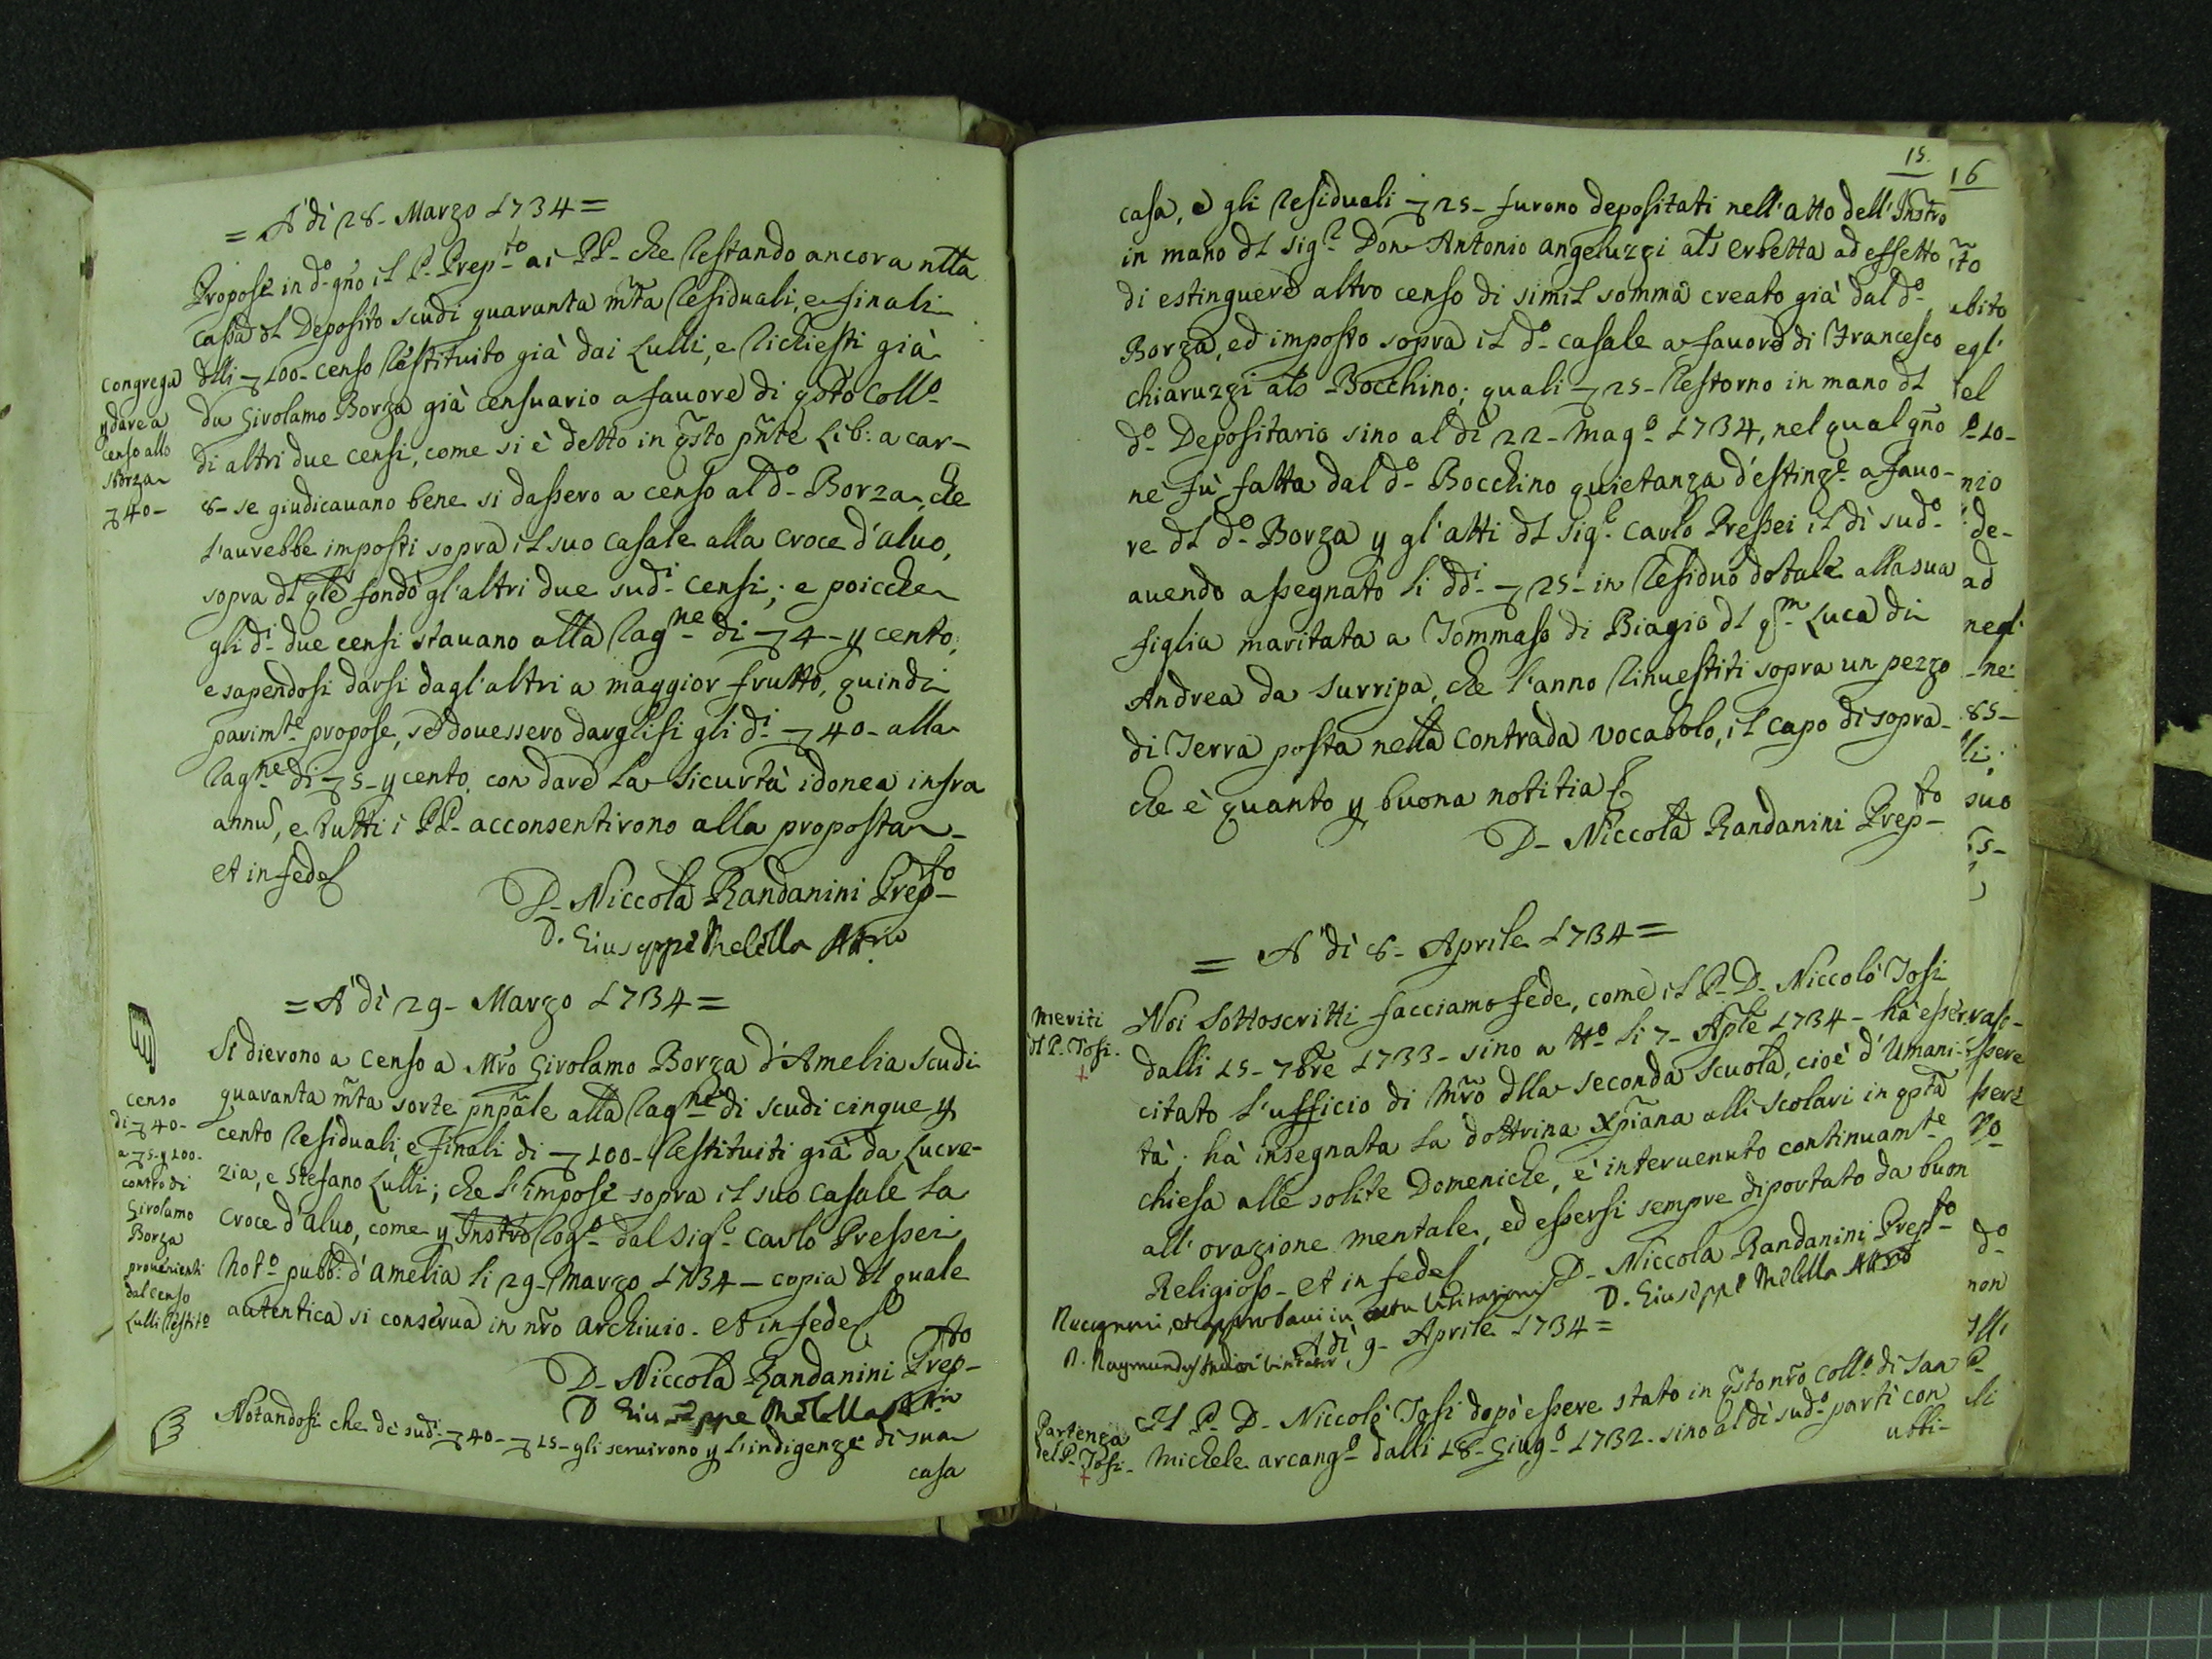 = A' dì 28- Marzo 1734 =
Propose in d.o gño il P. Prep.to ai PP. che restando ancora nlla
cassa dl Deposito scudi quaranta m̃ta residuali, e finali
dlli 100- censo restituito già dai Lulli, e richiesti già
da Girolamo Borza già censuario a favore di q̃sto Coll.o
di altri due censi, come si è detto in q̃sto pñte Lib: a car-
8- se giudicavano bene si dassero a censo al d.o Borza, che
l'aurebbe imposti sopra il suo casale alla Croce d'alvo,
sopra dl qle fondò gl'altri due sud.i censi; e poicche
gli d.i due censi stavano alla rag.ne di 4- p cento,
e sapendosi darsi dagl'altri a maggior frutto, quindi
parim.te propose, se dovessero darglisi gli d.i 40- alla
rag.ne di 5- p cento, con dare la sicurtà idonea infra
annũ, e tutti i PP. acconsentirono alla proposta-
et in fede
D. Niccola Randanini Prep.to
D. Giuseppe Melella Att.rio
Congrega
p dare a
censo allo
Borza
40-
= A' dì 29- Marzo 1734 =
Si dierono a censo a Mr̃o Girolamo Borza d'Amelia scudi
quaranta m̃ta sorte pnp̃ale alla rag.ne di scudi cinque p
cento residuali, e finali di 100- restituiti già da Lucre-
zia, e Stefano Lulli; che l'impose sopra il suo casale la
Croce d'alvo, come p Instro rog.o dal Sig.r Carlo Pressei
Not.o pubb: d'amelia li 29- Marzo 1734- copia dl quale
autentica si conserva in nr̃o archivio. et in fede
D. Niccola Randanini Prep.to
D Giuseppe Melella Att.rio
censo
di 40-
a 5- p 100-
contro di
Girolamo
Borza
provenienti
dal censo
Lulli restit.o
Notandosi che de sud.i 40- 15- gli servirono p l'indigenze di sua
casa
15.
casa, e gli residuali 25- furono depositati nell'atto dell'Instro
in mano dl Sig.r Don Antonio angeluzzi als erbetta ad effetto
di estinguere altro censo di simil somma creato già dal d.o
Borza, ed imposto sopra il d.o casale a favore di Francesco
chiaruzzi als Bocchino; quali 25- restorno in mano dl
d.o Depositario sino al dì 22- Mag.o 1734, nel qual gño
ne fù fatta dal d.o Bocchino quietanza d'estinz.e a favo-
re dl d.o Borza p gl'atti dl Sig.r Carlo Pressei il dì sud.o
avendo assegnato li dd.i 25- in residuo dotale alla sua
figlia maritata a Tommaso di Biagio dl q.m Luca di
Andrea da Surripa, che l'anno rinvestiti sopra un pezzo
di Terra posta nella contrada vocabolo, il capo di sopra-
che è quanto p buona notitia
D- Niccola Randanini Prep.to
= A' dì 8- Aprile 1734 =
Noi Sottoscritti facciamo fede, come il P. D. Niccolò Tosi
dalli 15- 7bre 1733- sino a tt.o li 7- Aple 1734- hà eser-
citato l'ufficio di Mr̃o dlla seconda scuola, cioè d'Umani-
tà; hà insegnata la dottrina xp̃iana alli scolari in q̃sta
chiesa alle solite Domeniche, è intervenuto continuam.te
all'orazione mentale, ed essersi sempre diportato da buon
Religioso- et in fede
D- Niccola Randanini Prep.to
D. Giuseppe Melella Att.rio
Meriti
dl P. Tosi.
Recognovi, et approbavi in actu visitationis
A dì 9- Aprile 1734 =
Il P. D. Niccolò Tosi dopò essere stato in q̃sto nr̃o Coll.o di San
Michele arcang.o dalli 18- Giug.o 1732- sino al dì sud.o partì con
ubbi-
Partenza
del P. Tosi-
16
ito
ubito
egl'
el
10-
nio
de-
ad
negl'
ne
85-
li;
suo
vas-
ssere
d.o
non
elli
P.
li